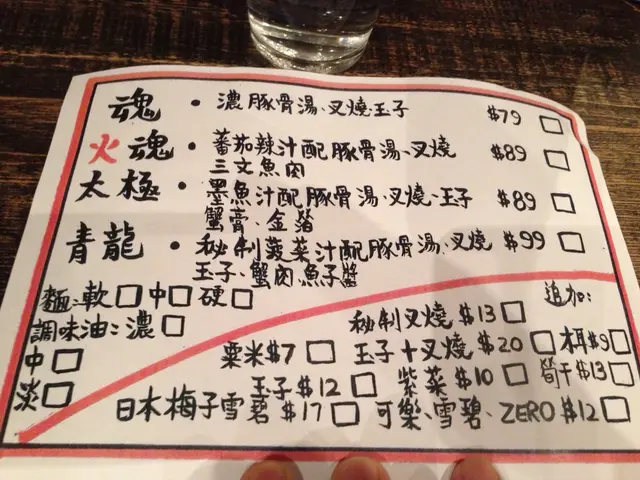 魂 • 濃豚骨湯、叉燒、玉子 $79
火魂 • 蕃茄辣汁配豚骨湯、叉燒 $89
三文魚肉
太極 • 墨魚汁配豚骨湯、叉燒、玉子 $89
蟹膏、金箔
青龍 • 秘制菠菜汁配豚骨湯、叉燒 $99
玉子、蟹肉、魚子醬
麵：軟 中 硬
追加：
調味油：濃
秘制叉燒 $13
中
粟米 $7 玉子+叉燒 $20 木耳 $9
淡
玉子 $12 紫菜 $10 筍干 $13
日本梅子雪碧 $17 可樂、雪碧、ZERO $12